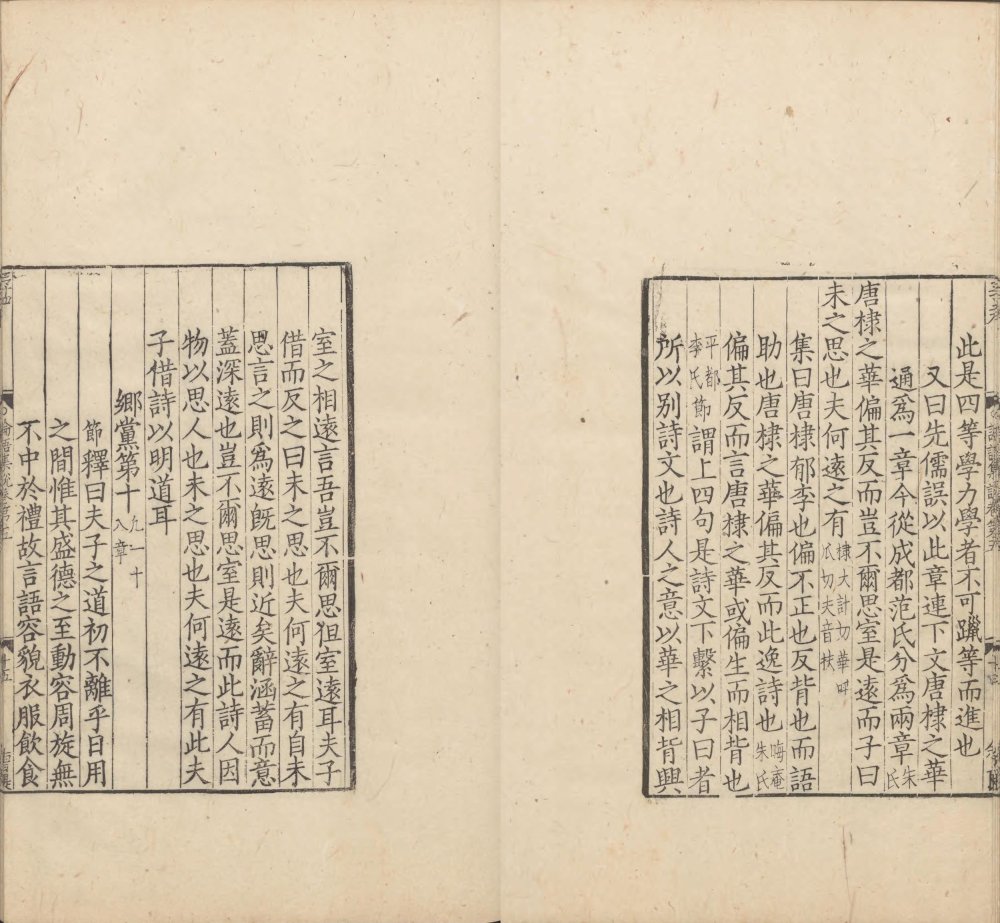 此是四等學力學者不可躐等而進也
又曰先儒誤以此章連下文唐棣之華
通爲一章今從成都范氏分爲兩章朱氏
唐棣之華偏其反而豈不爾思室是遠而子曰
未之思也夫何遠之有棣大計切華呼瓜切夫音扶
集曰唐棣郁李也偏不正也反背也而語
助也唐棣之華偏其反而此逸詩也晦庵朱氏
偏其反而言唐棣之華或偏生而相背也
平都李氏節謂上四句是詩文下繫以子曰者
所以别詩文也詩人之意以華之相背興
室之相遠言吾豈不爾思但室遠耳夫子
借而反之曰未之思也夫何遠之有自未
思言之則爲遠旣思則近矣辭涵蓄而意
蓋深遠也豈不爾思室是遠而此詩人因
物以思人也未之思也夫何遠之有此夫
子借詩以明道耳
鄉黨第十凡一十八章
節釋曰夫子之道初不離乎日用
之間惟其盛德之至動容周旋無
不中於禮故言語容貌衣服飲食